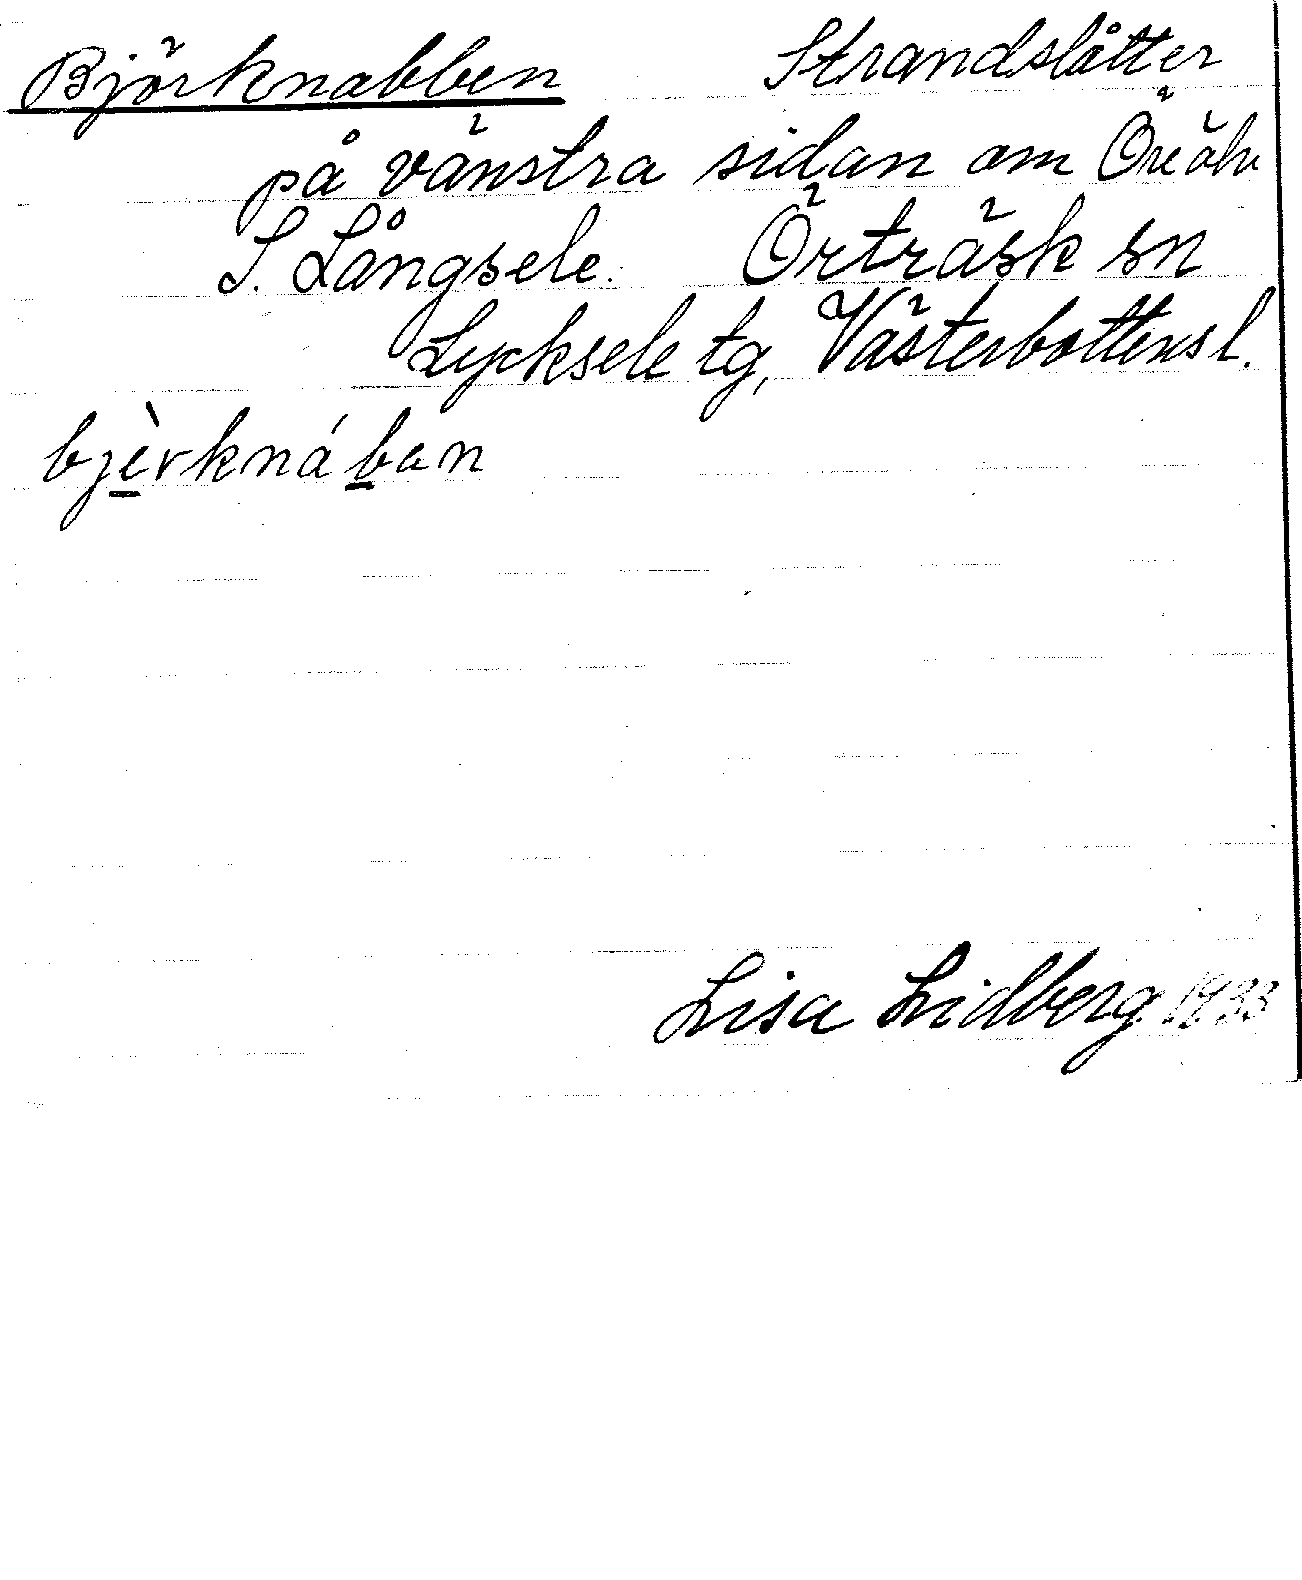 Björknabben Strandslåtter
på vänstra sidan om Öre älv
S. Långsele. Örträsk sn
Lycksele tg, Västerbottens l.
bjèrknában
Lisa Lidberg 1933